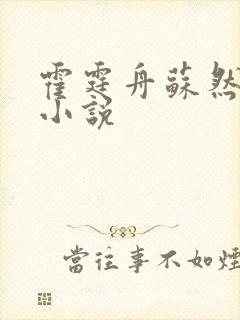 霍霆舟蘇然
小說
當往事不如煙